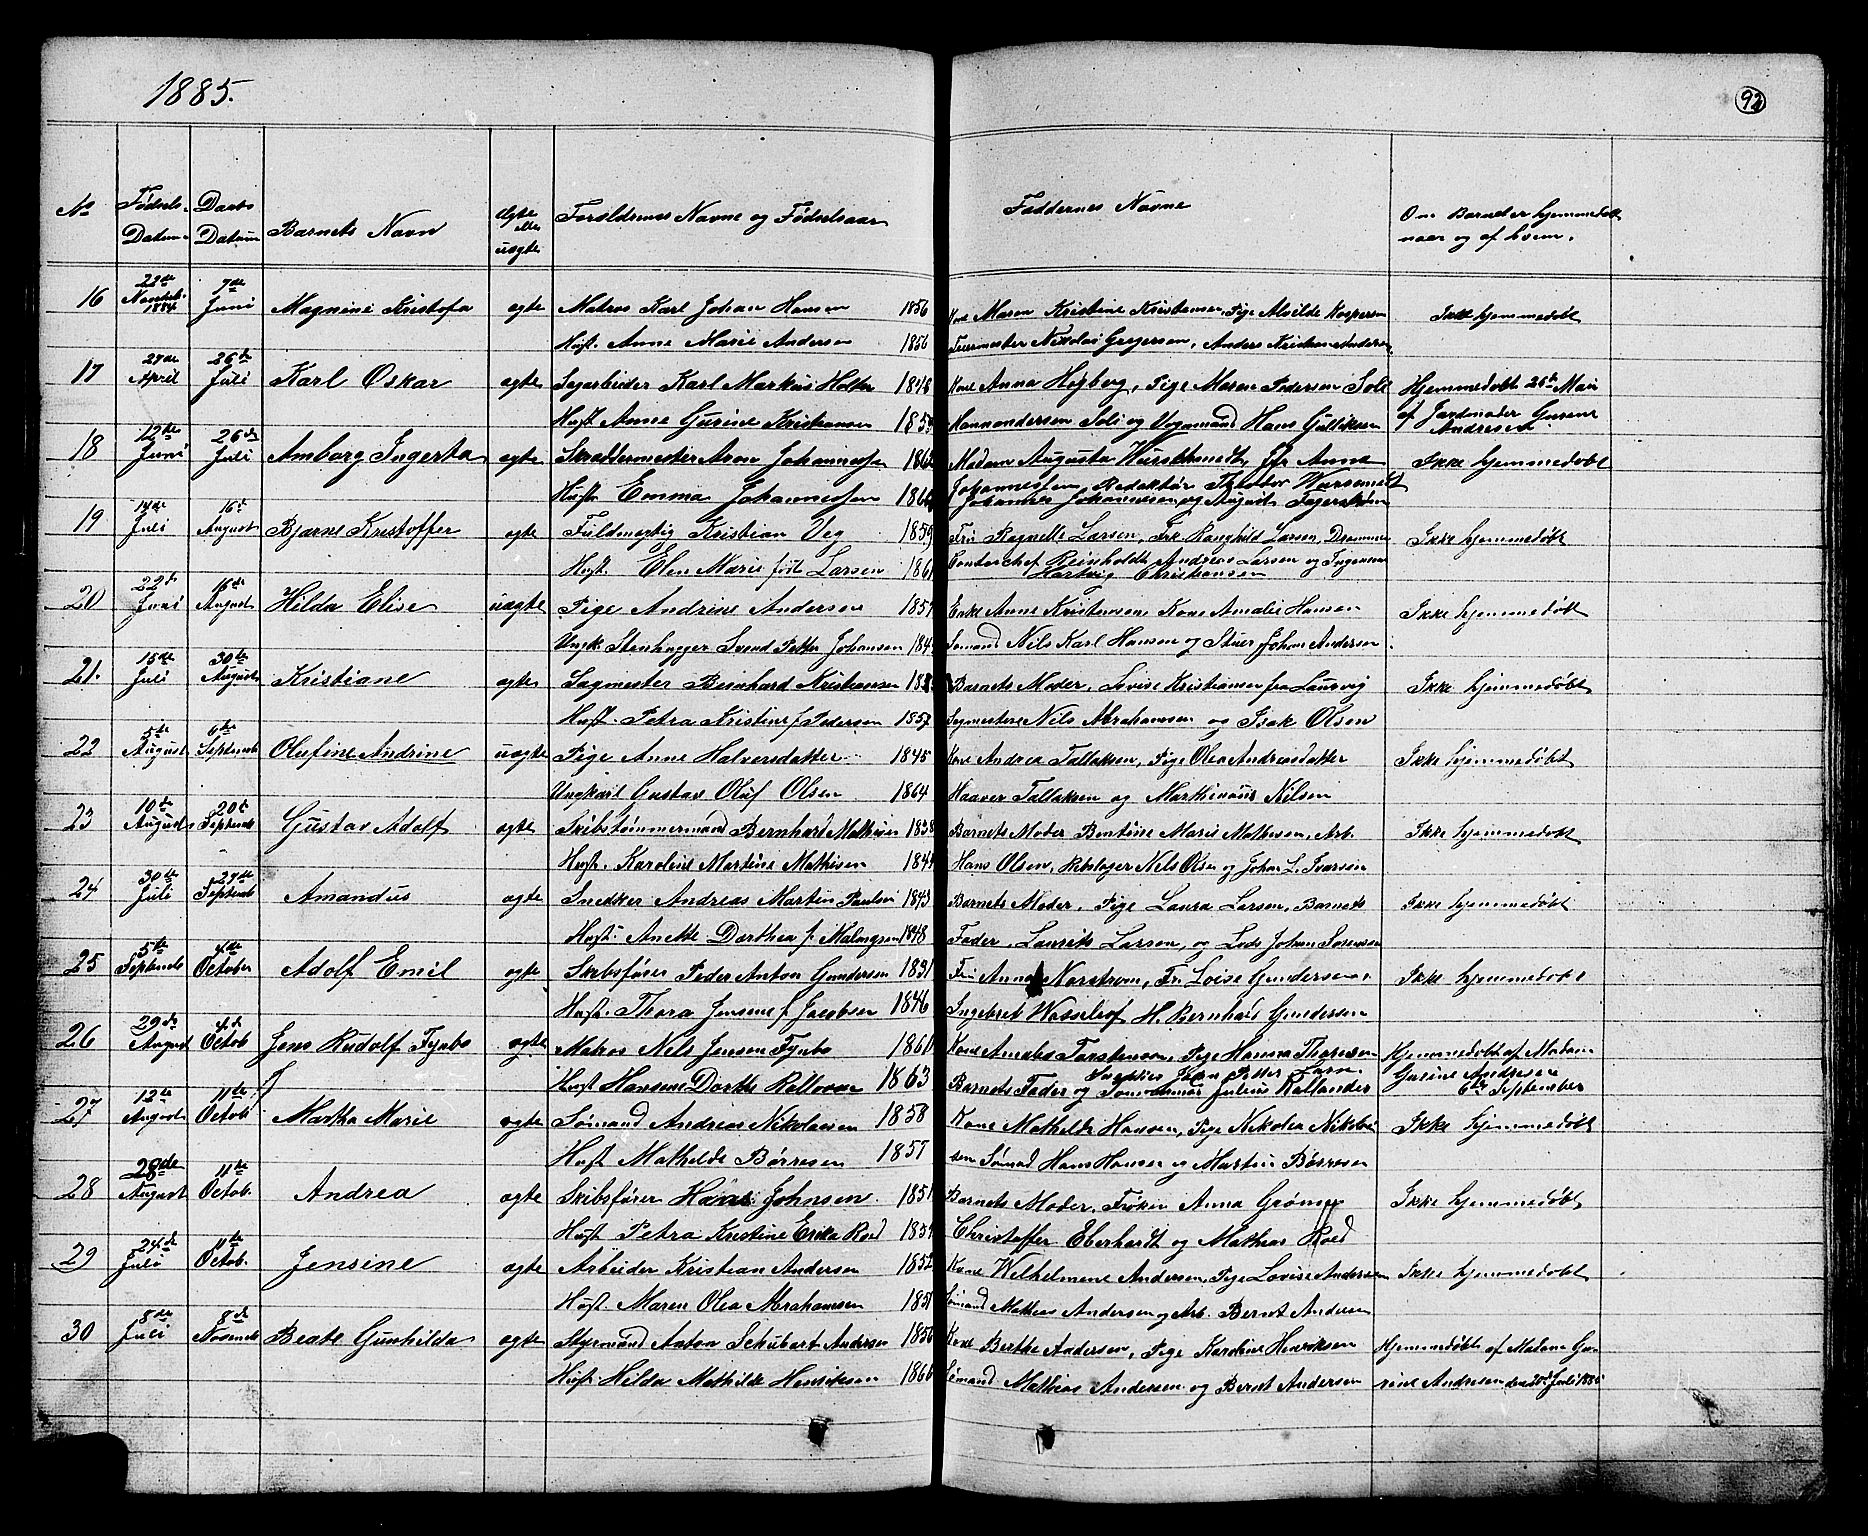 1885.
92
No
Fødsels-
Datum
Daabs
Datum
Barnets Navn
Ægte
eller
uægte
Forældrenes Navne og Fødselsaar
Faddernes Navne
Om Barnet er hjemmedøbt
naar og af hvem.
16 22de Novemb. 1884 7de Juni Magnine Kristofa ægte Matros Karl Johan Hansen 1856 Kone Maren Kristine Kristensen, Pige Alvilde Kaspersen Ikke hjemmedøbt
Hust. Anne Marie Andersen 1856 Feiermester Nikolai Gregersen, Anders Kristian Andersen
17 27de April 26de Juli Karl Oskar ægte Sagarbeider Karl Markus Holter 1848 Kone Anna Høgberg, Pige Maren Pedersen Soli Hjemmedøbt 25de Mai
Hust. Anne Gurine Kristiansen og Vognmand Hans Gulliksen af Jordmoder Gusine
Andresen
18 12te Juni 26de Juli Amborg Ingerta ægte Skræddermester Aron Johannessen Madam Augusta Anna Ikke hjemmedøbt
Hust. Emma Johannessen Johannessen, Redaktør Theodor
Johannes Johannessen og August Fagerström
19 14de Juli 16de August Bjarne Kristoffer ægte Fuldmægtig Kristian Veg 1859 Fru Ragnelle Larsen, Frk. Ranghild Larsen, Drammen Ikke hjemmedøbt
Hust. Elen Marie født Larsen 1861 Kontorchef Reinholdt Andreas Larsen og Ingeniør
Hartvig Christiansen
20 22de Juni 16de August Hilda Elise uægte Pige Andrine Andersen 1857 Enke Anne Kristensen, Kone Amalie Hansen Ikke hjemmedøbt
Ungk. Stenhugger Svend Petter Johansen 184 Sømand Nils Karl Hansen og Stuer Johan Andersen
21. 15de Juli 30te August Kristiane ægte Sagmester Bernhard Kristiansen Barnets Moder, Lovise Kristiansen fra Laurvig Ikke hjemmedøbt
Hust. Petra Kristine f. Pedersen 1857 Sagmestere Nils Abrahamsen og Isak Olsen
22 5te August 6te Septemb. Olufine Andrine uægte Pige Anne Halversdatter 1845 Kone Andrea Tallaksen, Pige Olea Andreasdatter Ikke hjemmedøbt
Ungkarl Gustav Oluf Olsen 1864 Haaver Tallaksen og Marthinius Nilsen
23 10de August 20de Septemb. Gustav Adolf ægte Skibstømmermand Bernhard Mathisen 1838 Barnets Moder Bentine Marie Mathisen, Arb. Ikke hjemmedøbt
Hust. Karoline Martine Mathisen 1844 Hans Olsen, Rebslager Nils Olsen og Johan L. Ivarsen
24 30te Juli 27de Septemb Amandus ægte Snedker Andreas Martin Paulsen 1843 Barnets Moder, Pige Laura Larsen, Barnets Ikke hjemmedøbt
Hust. Anette Dorthea f. Malmgren 1848 Fader, Laurits Larsen, og Lods Johan Sørensen
25 5te Septemb 4de October Adolf Emil ægte Skibsfører Peder Anton Gundersen 1831 Fru Anna Norstrøm, Fr. Loise Gundersen, Ikke hjemmedøbt
Hust. Thora Jensine f. Jacobsen 1846 Ingebret Wasselrof H. Bernhard Gundersen
26 29de August 4de Octob. Jens Rudolf Fynbo ægte Matros Nils Jensen Fynbo 1860 Kone Torstensen, Pige Hanna Thoresen Hjemmedøbt af Madam
Hust. Hansine Dorthe 1863 Petter Larsen Gusine Andresen
Barnets Fader og Julius Rallander 6te September
27 12te August 11te Octob. Martha Marie ægte Sømand Andreas Nikolaisen 1858 Kone Mathilde Hansen, Pige Nikolea Nikolai- Ikke hjemmedøbt
Hust. Mathilde Børresen 1857 sen Sømand Hans Hansen og Martin Børresen
28 28de August 11te Octob. Andrea ægte Skibsfører Hans Johnsen 1851 Barnets Moder, Frøken Anna Grøning Ikke hjemmedøbt
Hust. Petra Kristine Erika Roed 1854 Christoffer Eberhardt og Mathias Roed
29 24de Juli 11te Octob. Jensine ægte Arbeider Kristian Andersen 1852 Kone Wilhelmine Andersen, Pige Lovise Andersen Ikke hjemmedøbt
Hust. Maren Olea Abrahamsen 1851 Sømand Mathias Andersen og Arb. Bernt Andersen
30 8de Juli 8de Novemb Beate Gunhilda ægte Styrmand Anton Schubart Andersen 1856 Kone Berthe Andersen, Pige Karoline Henriksen Hjemmedøbt af Madam Gu-
Hust. Hilda Mathilde Henriksen 1866 Sømand Mathias Andersen og Bernt Andersen sine Andresen den 20de Juli 1885